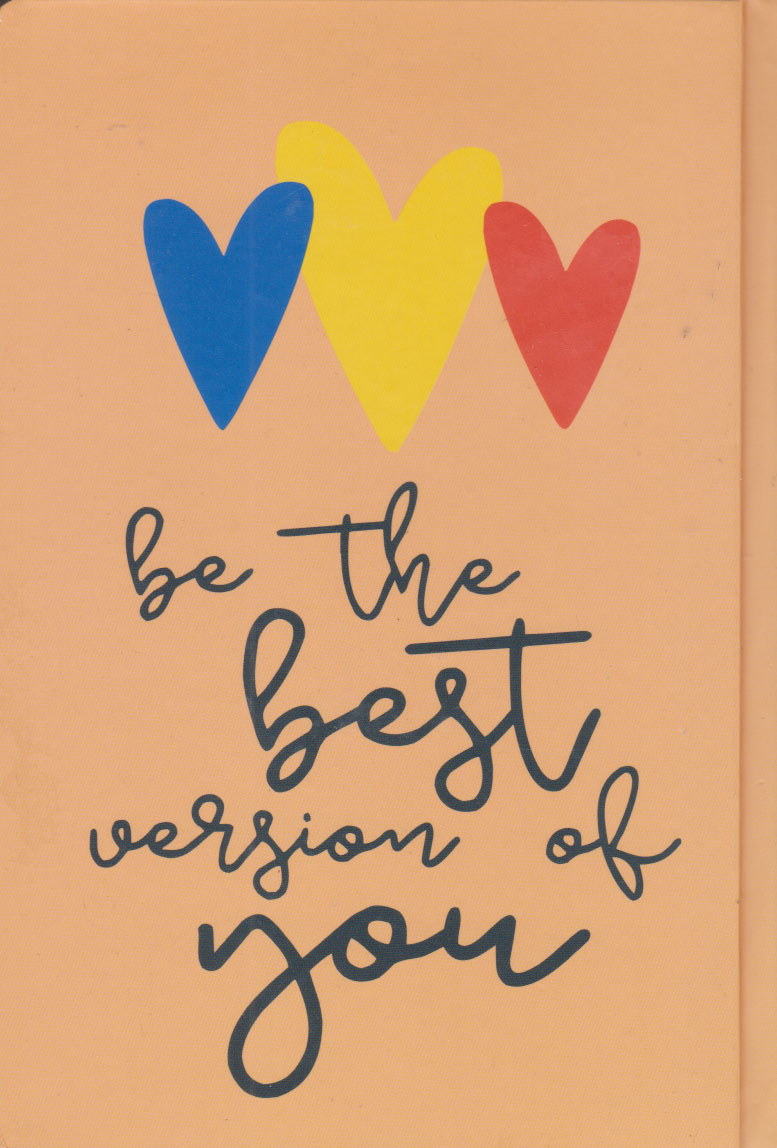 be the
best
version of
you